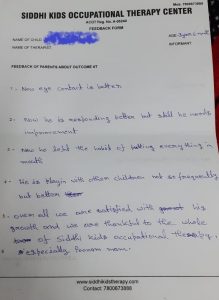 Mob: 7800673888
SIDDHI KIDS OCCUPATIONAL THERAPY CENTER
FEEDBACK FORM
NAME OF CHILD
AGE-
NAME OF THERAPIST
INFORMANT
FEEDBACK OF PARENTS ABOUT OUTCOME
1- Now eye contact is better.
2- Now he is responding better but still he needs
improvement
3- Now he left the habit of everything in
mouth
4- He is playin with other children not so frequently
but better
5- over all we are satisfied with his
growth and we are thankful to the whole
of Siddhi kids occupational therapy,
especially Poonam mam.
www.siddhikidstherapy.com
Contact: 7800673888